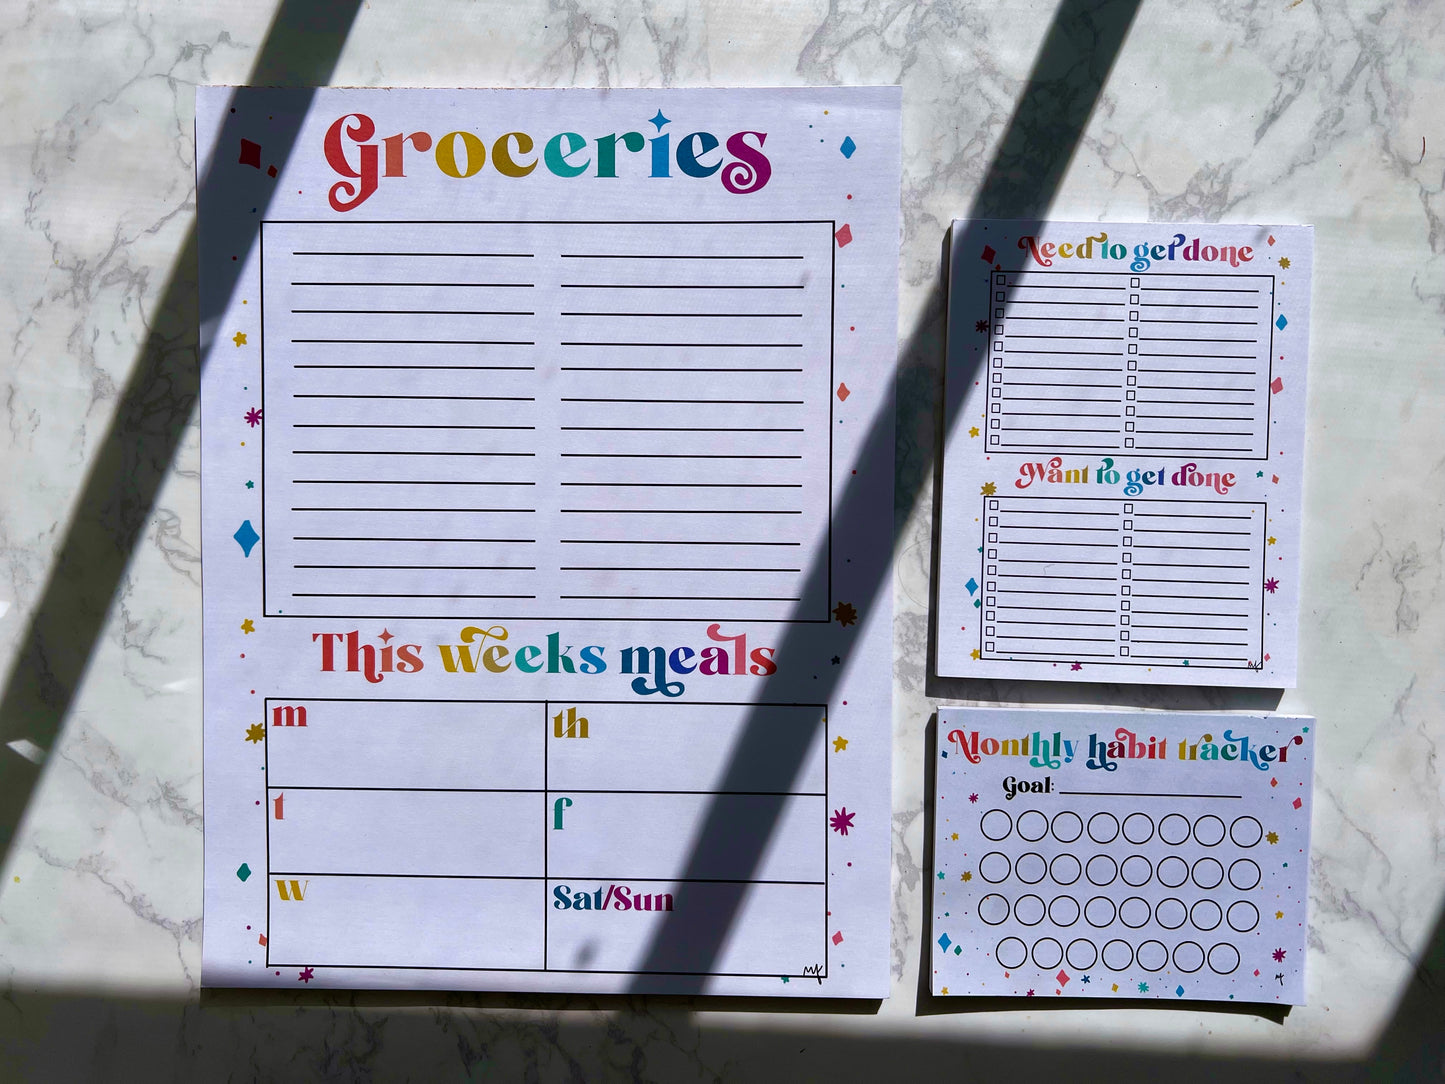 Groceries
This weeks meals
m
th
t
f
w
Sat/Sun
MK
Need to get done
Want to get done
MK
Monthly habit tracker
Goal: